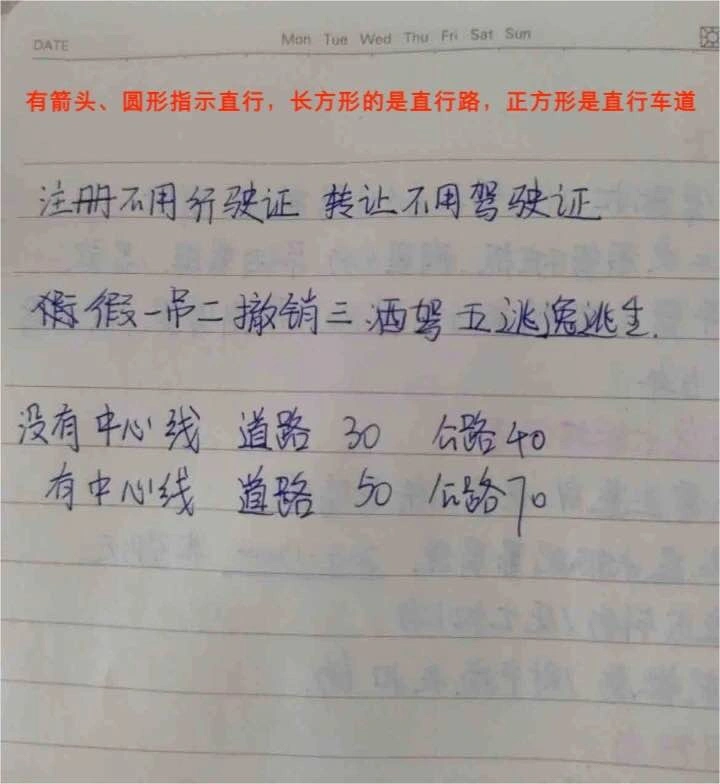 DATE Mon Tue Wed Thu Fri Sat Sun
有箭头、圆形指示直行，长方形的是直行路，正方形是直行车道
注册不用行驶证 转让不用驾驶证
假一吊二撤销三 酒驾五逃逸逃生.
没有中心线 道路 30 公路40
有中心线 道路 50 公路70